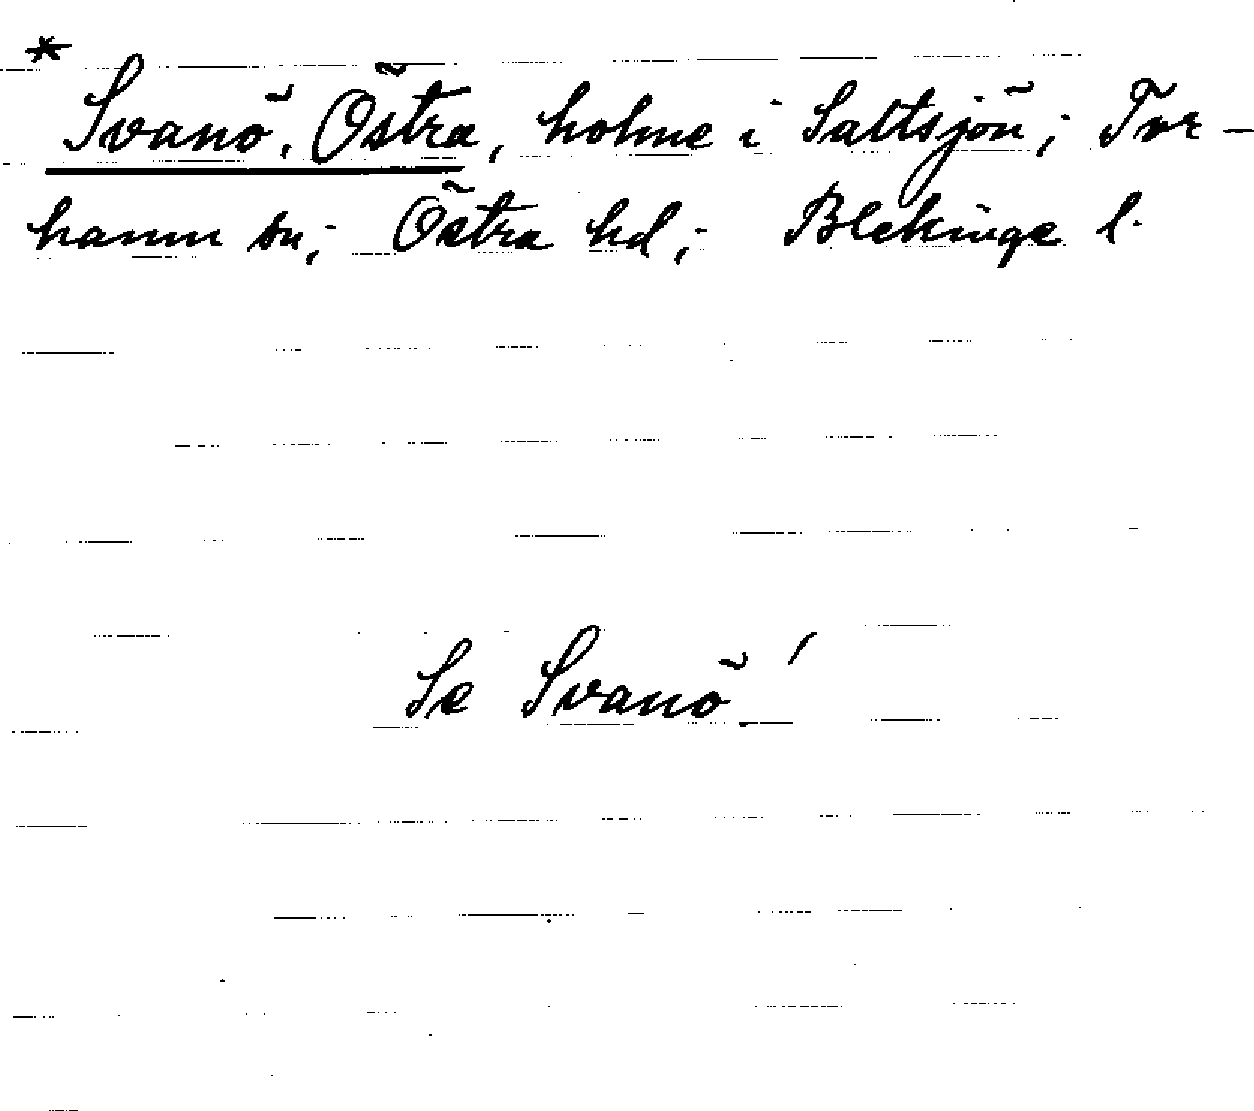 * Svanö, Östra, holme i Saltsjön; Tor-
hamn sn; Östra hd; Blekinge l.
Se Svanö!